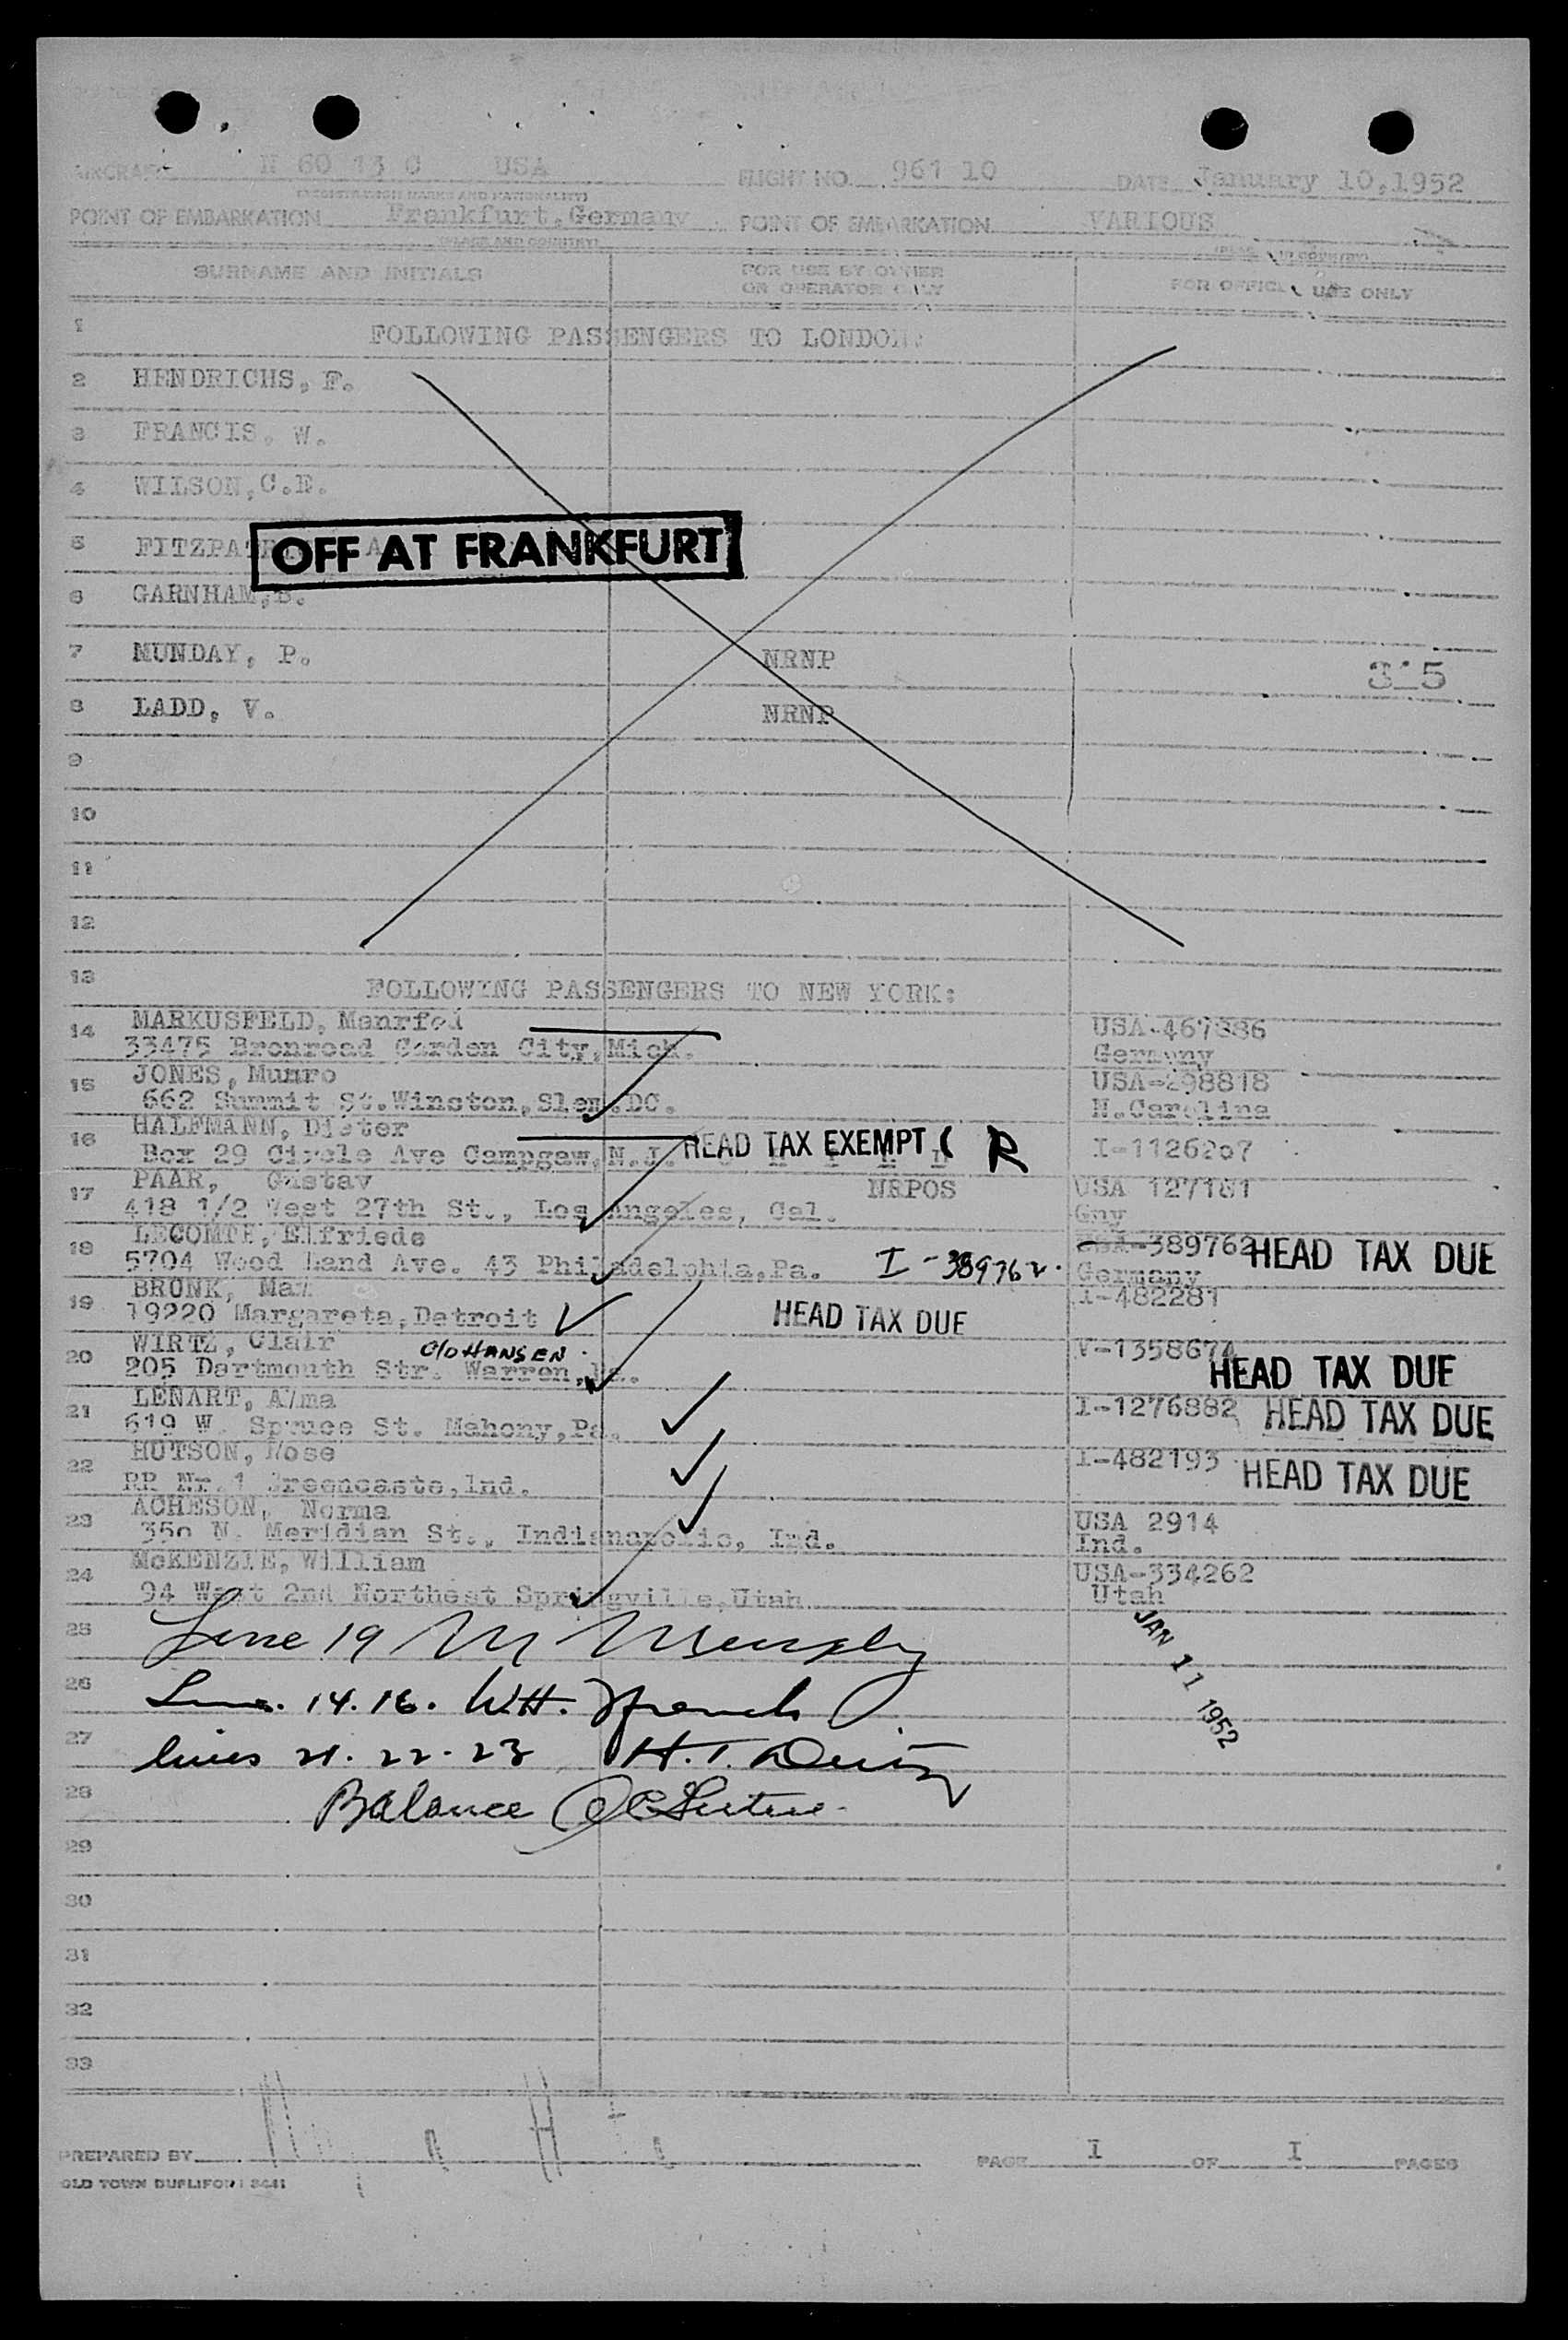 N 60 13 C USA FLIGHT NO. 961 10 DATE January 10,1952
(REGISTRATION MARKS AND NATIONALITY)
POINT OF EMBARKATION Frankfurt,Germany POINT OF EMBARKATION VARIOUS
(PLACE AND COUNTRY)
SURNAME AND INITIALS FOR USE BY OWNER OR OPERATOR ONLY FOR OFFICIAL USE ONLY
1 FOLLOWING PASSENGERS TO LONDON:
2 HENDRICHS, F.
3 FRANCIS, W.
4 WILSON,C.E.
OFF AT FRANKFURT
5
6 GARNHAM,B.
7 MUNDAY, P. NRNP
8 LADD, V. NRNP
9
10
11
12
13 FOLLOWING PASSENGERS TO NEW YORK:
14 MARKUSFELD, Manrfed USA-467886
33475 Bronroad Garden City,Mich. Germany
15 JONES, Munro USA-298818
662 Summit St.Winston,Slem.DC. N.Carolina
16 HALFMANN, Dieter HEAD TAX EXEMPT ( R I-1126207
Box 29 Circle Ave Campgaw,N.J.
17 PAAR, Gustav NRPOS USA 127181
418 1/2 West 27th St., Los Angeles, Cal. Gny
18 LECOMTE, Elfriede 389762 HEAD TAX DUE
5704 Wood Land Ave. 43 Philadelphia,Pa. I-389762. Germany
19 BRONK, Max I-482281
19220 Margareta,Detroit HEAD TAX DUE
20 WIRTZ, Clair C/O HANSEN V-1358674 HEAD TAX DUE
205 Dartmouth Str. Warren,Pa.
21 LENART, Alma I-1276882 HEAD TAX DUE
619 W. Spruce St. Mahony,Pa.
22 HUTSON, Rose I-482193 HEAD TAX DUE
RR Nr.1 Greencaste,Ind.
23 ACHESON, Norma USA 2914
350 N. Meridian St., Indianapolis, Ind. Ind.
24 McKENZIE, William USA-334262
94 West 2nd Northest Springville,Utah Utah
JAN 11 1952
25 Line 19 M Murphy
26 14.16. W.H. French
27 lines 21. 22. 23 H.T.
28 Balance
29
30
31
32
33
PREPARED BY PAGE I OF I PAGES
OLD TOWN